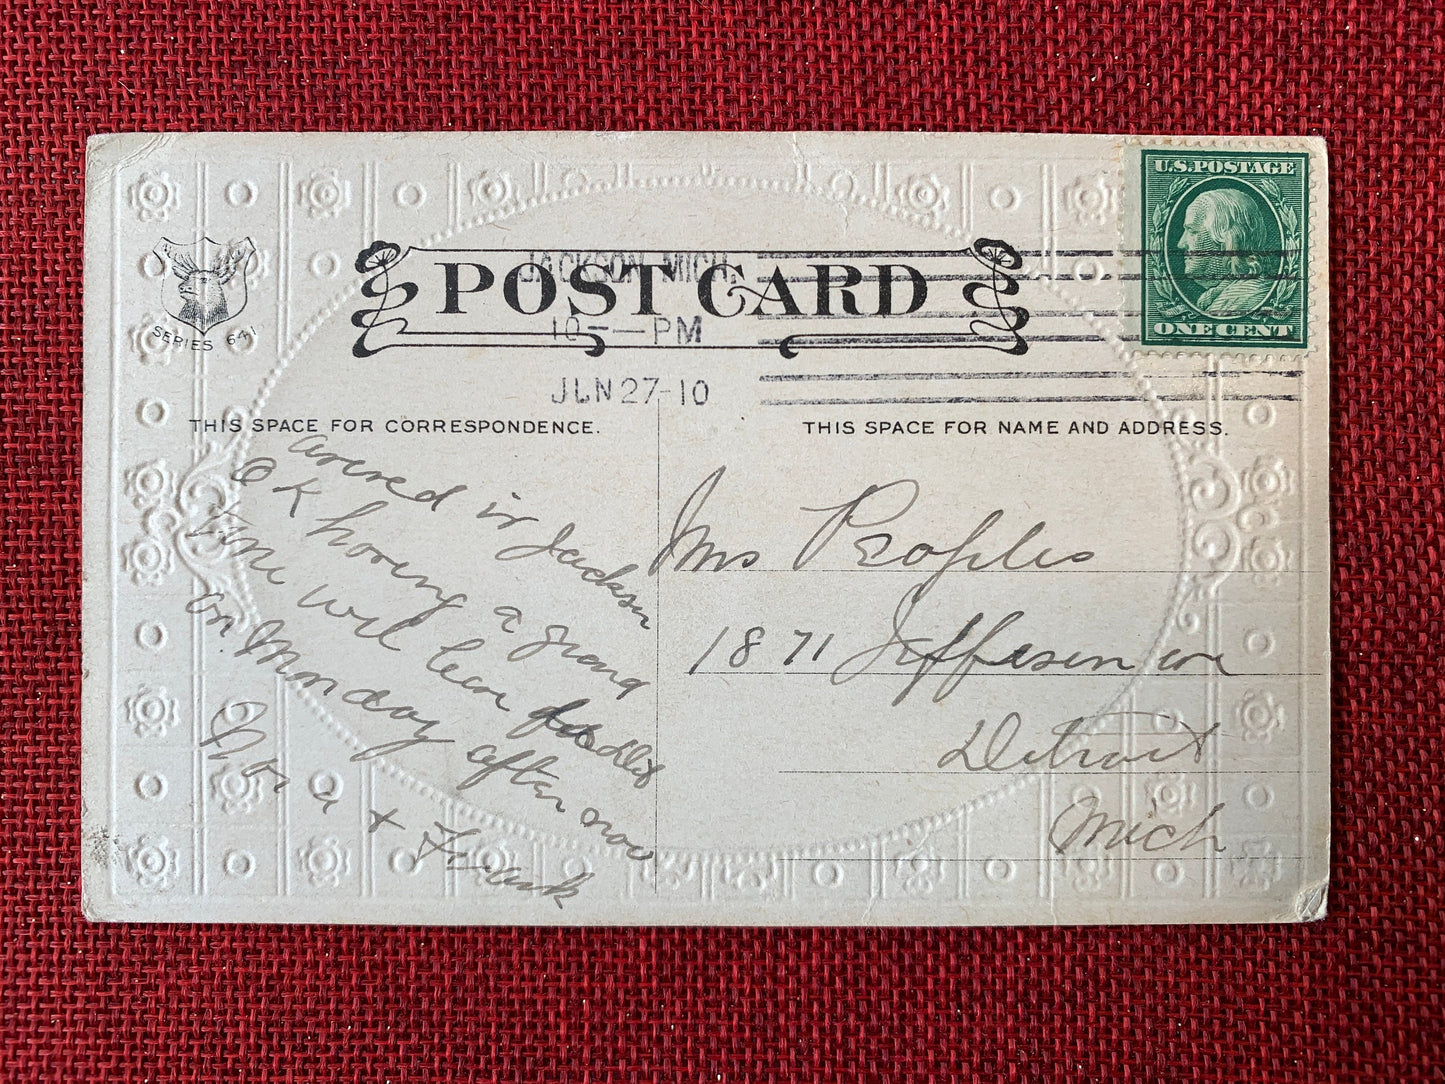 U.S. POSTAGE
ONE CENT
JACKSON, MICH.
10 — PM
JUN 27-10
POST CARD
SERIES 641
THIS SPACE FOR CORRESPONDENCE.
THIS SPACE FOR NAME AND ADDRESS.
arived in Jackson
O K having a grand
time will leve
on Monday after now
Nora + Frank
Mrs Peoples
1871 Jeffersen ave
Detroit
Mich